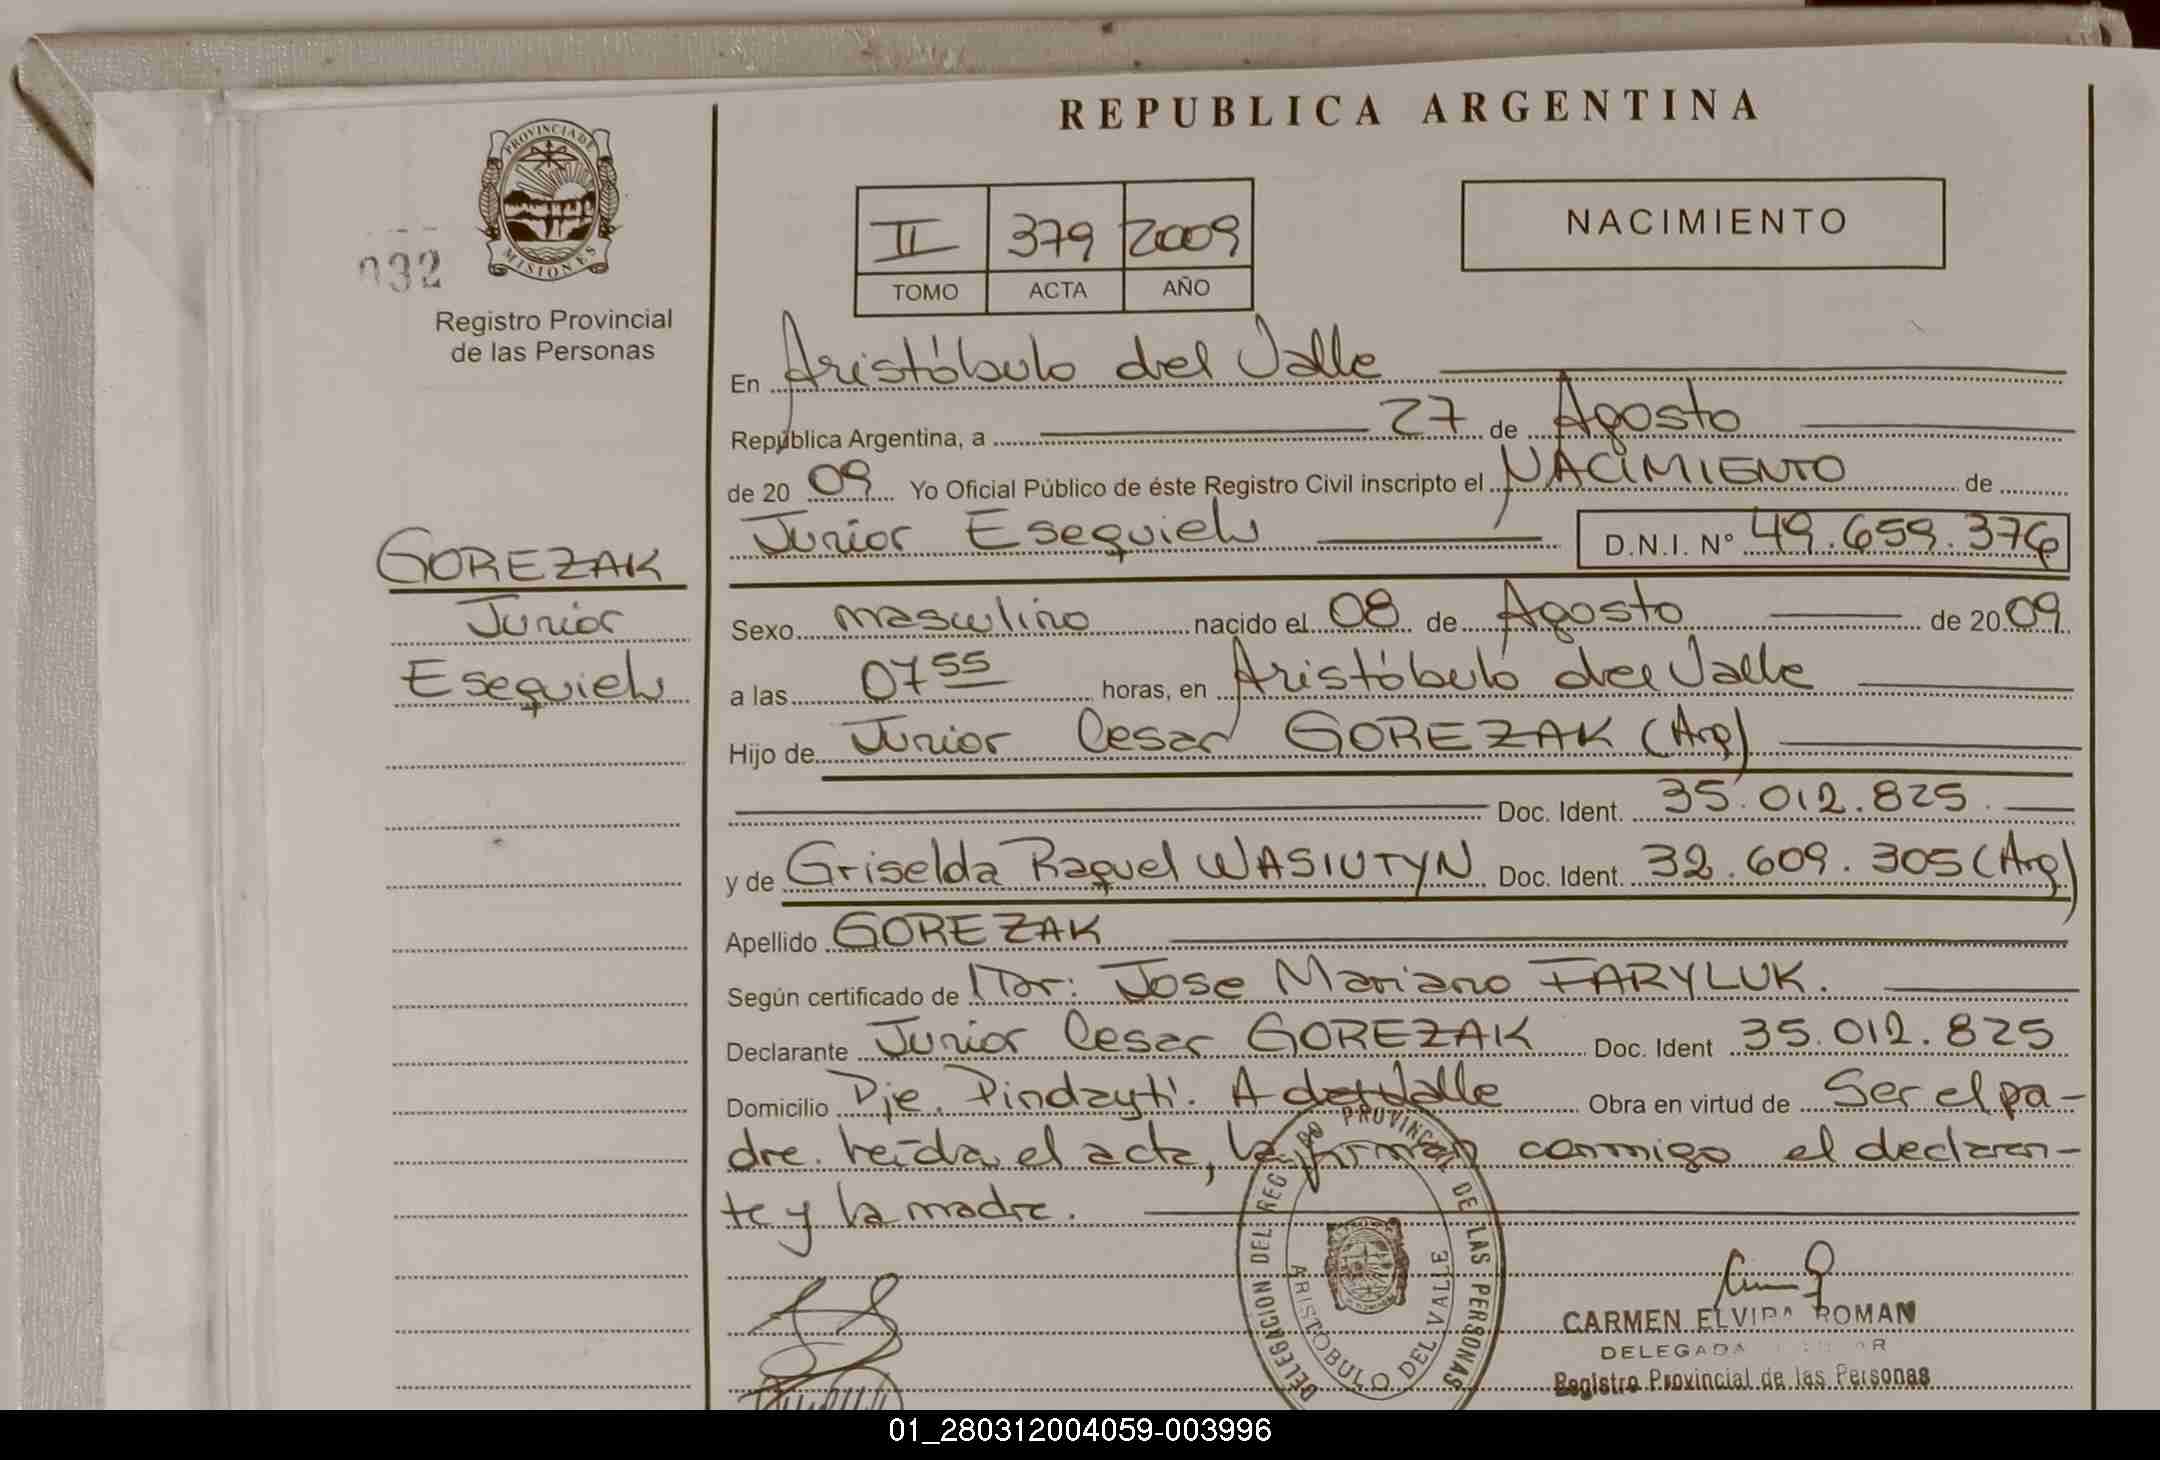 REPUBLICA ARGENTINA
PROVINCIA DE
MISIONES
032
Registro Provincial
de las Personas
II 379 2009
TOMO ACTA AÑO
NACIMIENTO
En Aristóbulo del Valle
República Argentina, a 27 de Agosto
de 20 09 Yo Oficial Público de éste Registro Civil inscripto el NACIMIENTO de
Junior Esequiel D.N.I. Nº 49.659.376
GOREZAK
Junior
Esequiel
Sexo masculino nacido el 08 de Agosto de 20 09
a las 07 55 horas, en Aristóbulo del Valle
Hijo de Junior Cesar GOREZAK (Arg)
Doc. Ident. 35.012.825.
y de Griselda Raquel WASIUTYN Doc. Ident. 32.609.305 (Arg)
Apellido GOREZAK
Según certificado de Dr: Jose Mariano FARYLUK.
Declarante Junior Cesar GOREZAK Doc. Ident 35.012.825
Domicilio Pje. Pindayti. A del Valle Obra en virtud de Ser el pa-
dre. Leída el acta, la firman conmigo el declaran-
te y la madre.
DELEGACION DEL REG PROVINCIAL DE LAS PERSONAS
ARISTOBULO DEL VALLE
CARMEN ELVIRA ROMAN
DELEGADA
Registro Provincial de las Personas
01_280312004059-003996